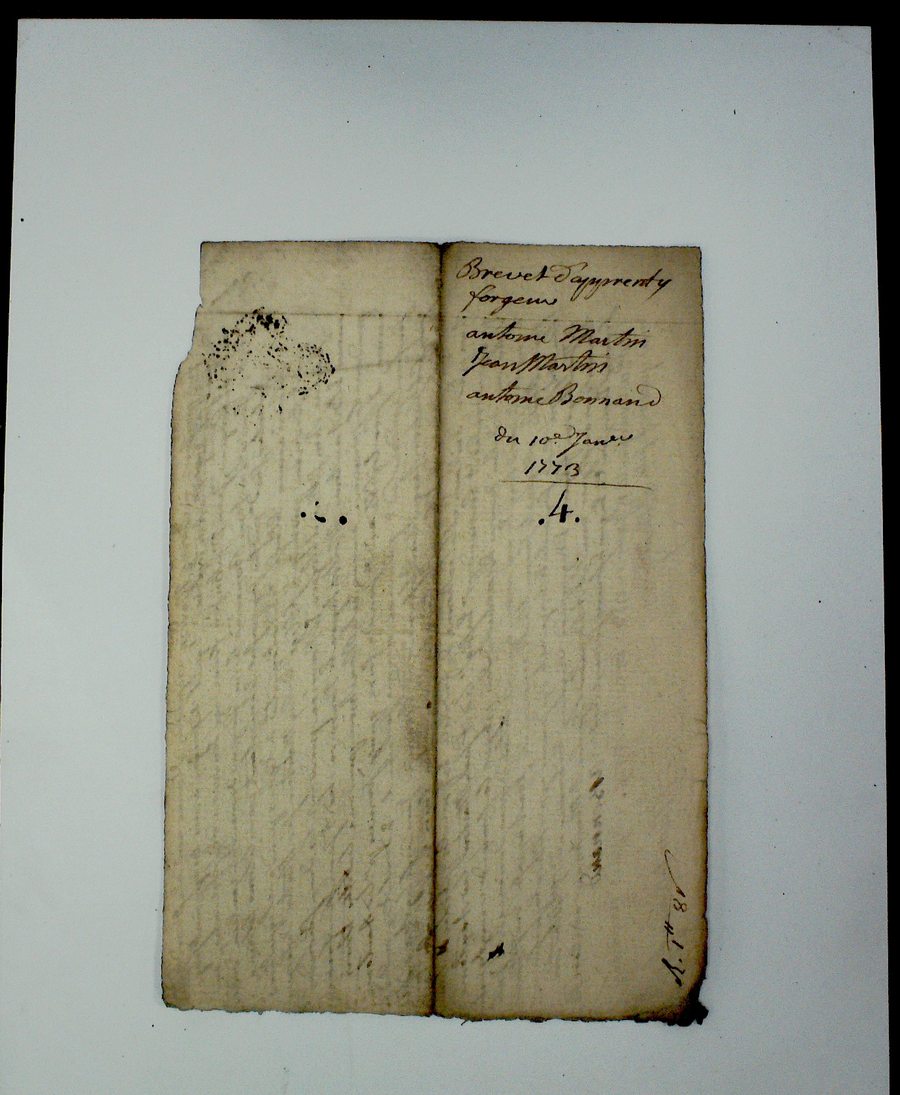 Brevet d'apprenty
forgeur
antoine Martin
Jean Martin
antoine Bonnand
du 10e Janer
1773
.4.
R. 1tt 8s